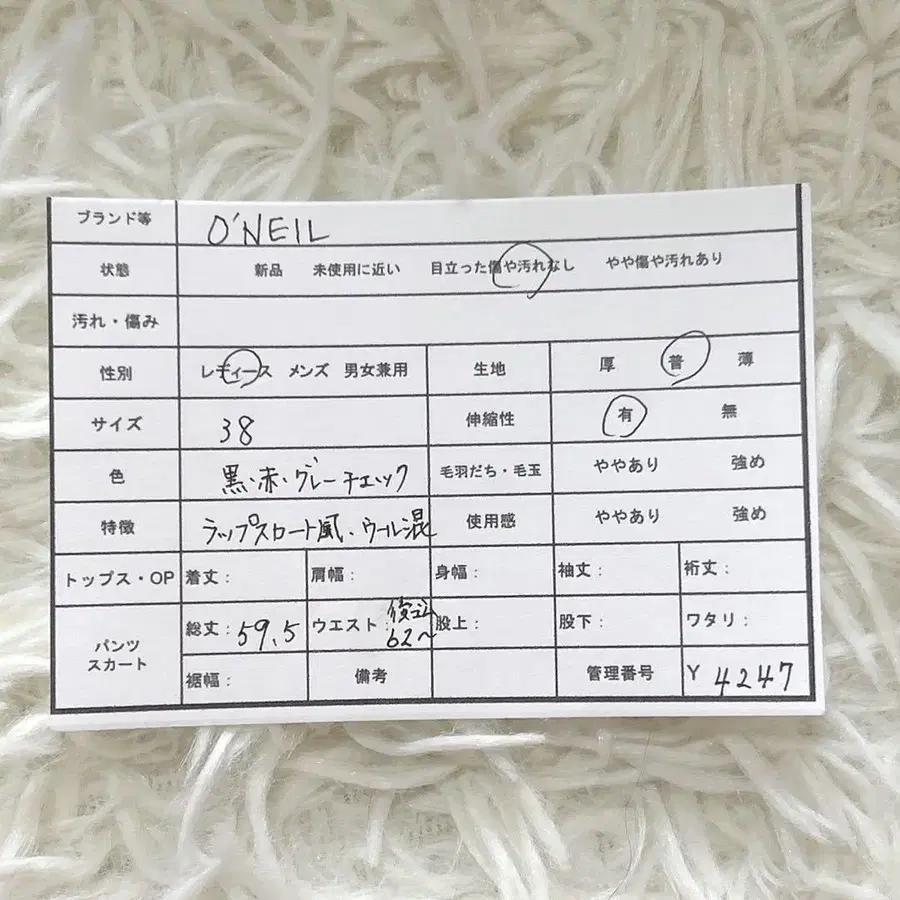 ブランド等 O'NEIL
状態 新品 未使用に近い 目立った傷や汚れなし やや傷や汚れあり
汚れ・傷み
性別 レディース メンズ 男女兼用 生地 厚 普 薄
サイズ 38 伸縮性 有 無
色 黒・赤・グレーチェック 毛羽だち・毛玉 ややあり 強め
特徴 ラップスカート風、ウール混 使用感 ややあり 強め
トップス・OP 着丈: 肩幅: 身幅: 袖丈: 裄丈:
パンツ スカート 総丈: 59.5 ウエスト: 62〜 股上: 股下: ワタリ:
裾幅: 備考 管理番号 Y 4247